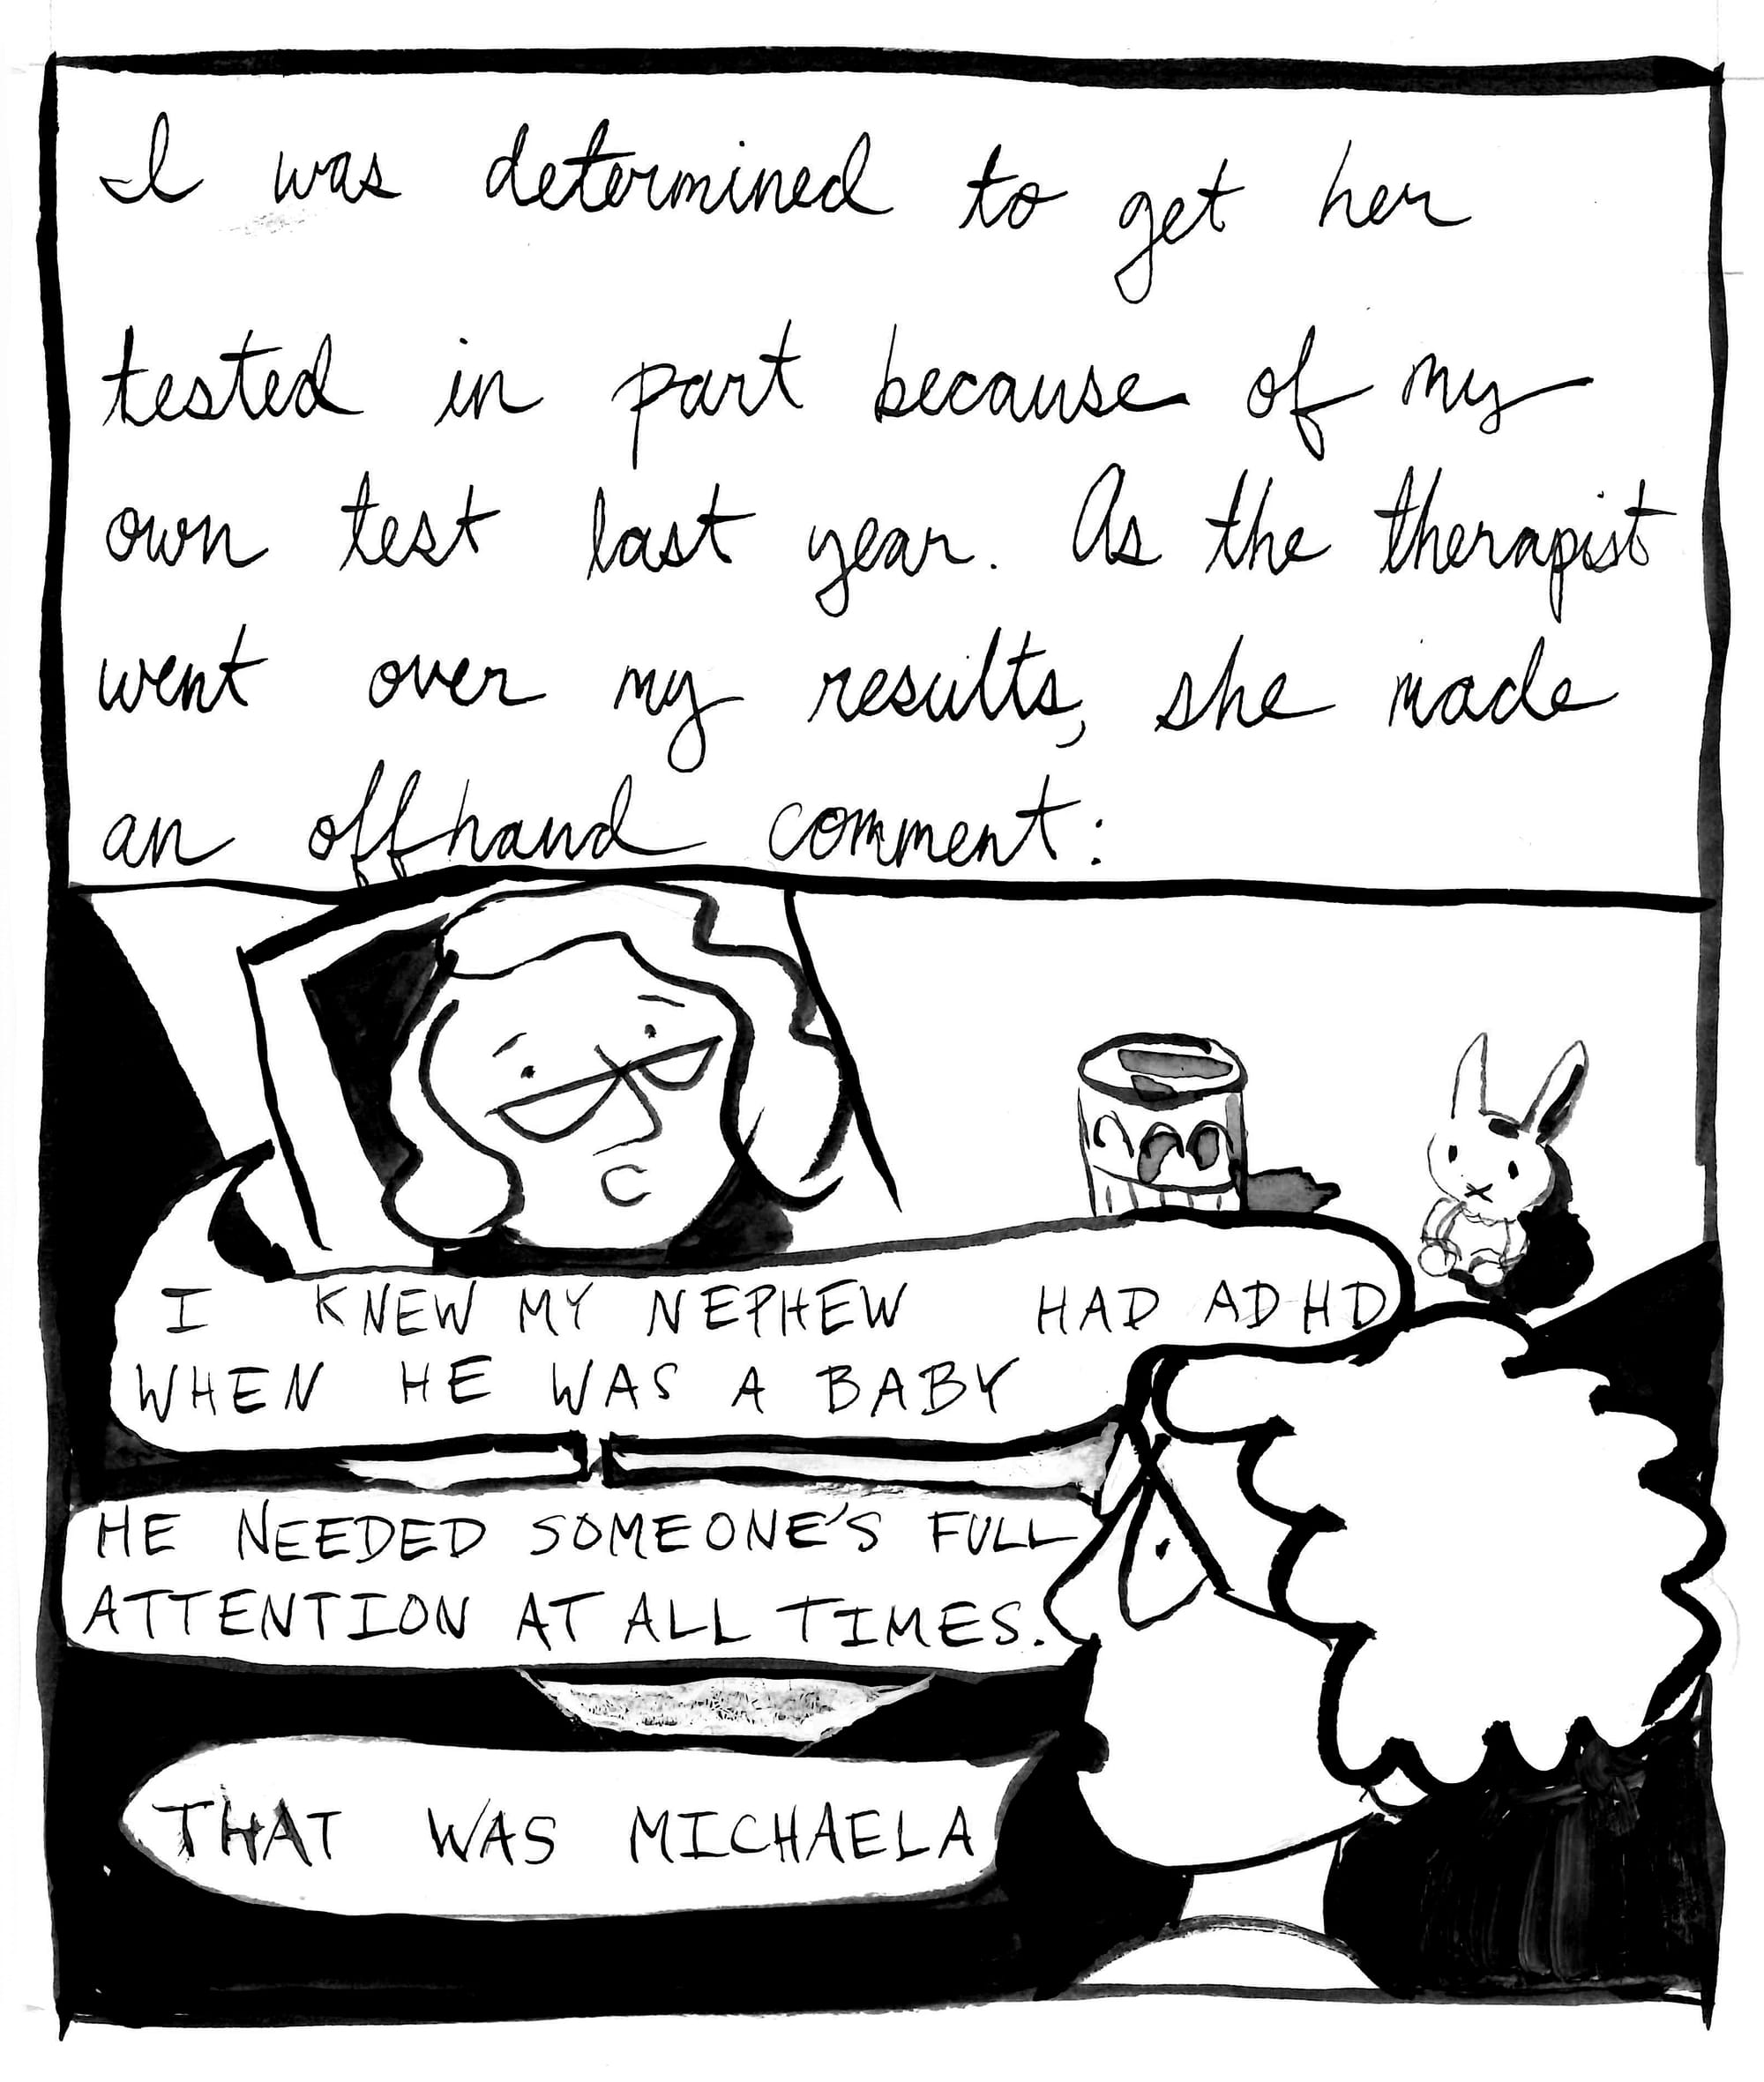 I was determined to get her
tested in part because of my
own test last year. As the therapist
went over my results, she made
an offhand comment:
I KNEW MY NEPHEW HAD ADHD
WHEN HE WAS A BABY
HE NEEDED SOMEONE'S FULL
ATTENTION AT ALL TIMES.
THAT WAS MICHAELA